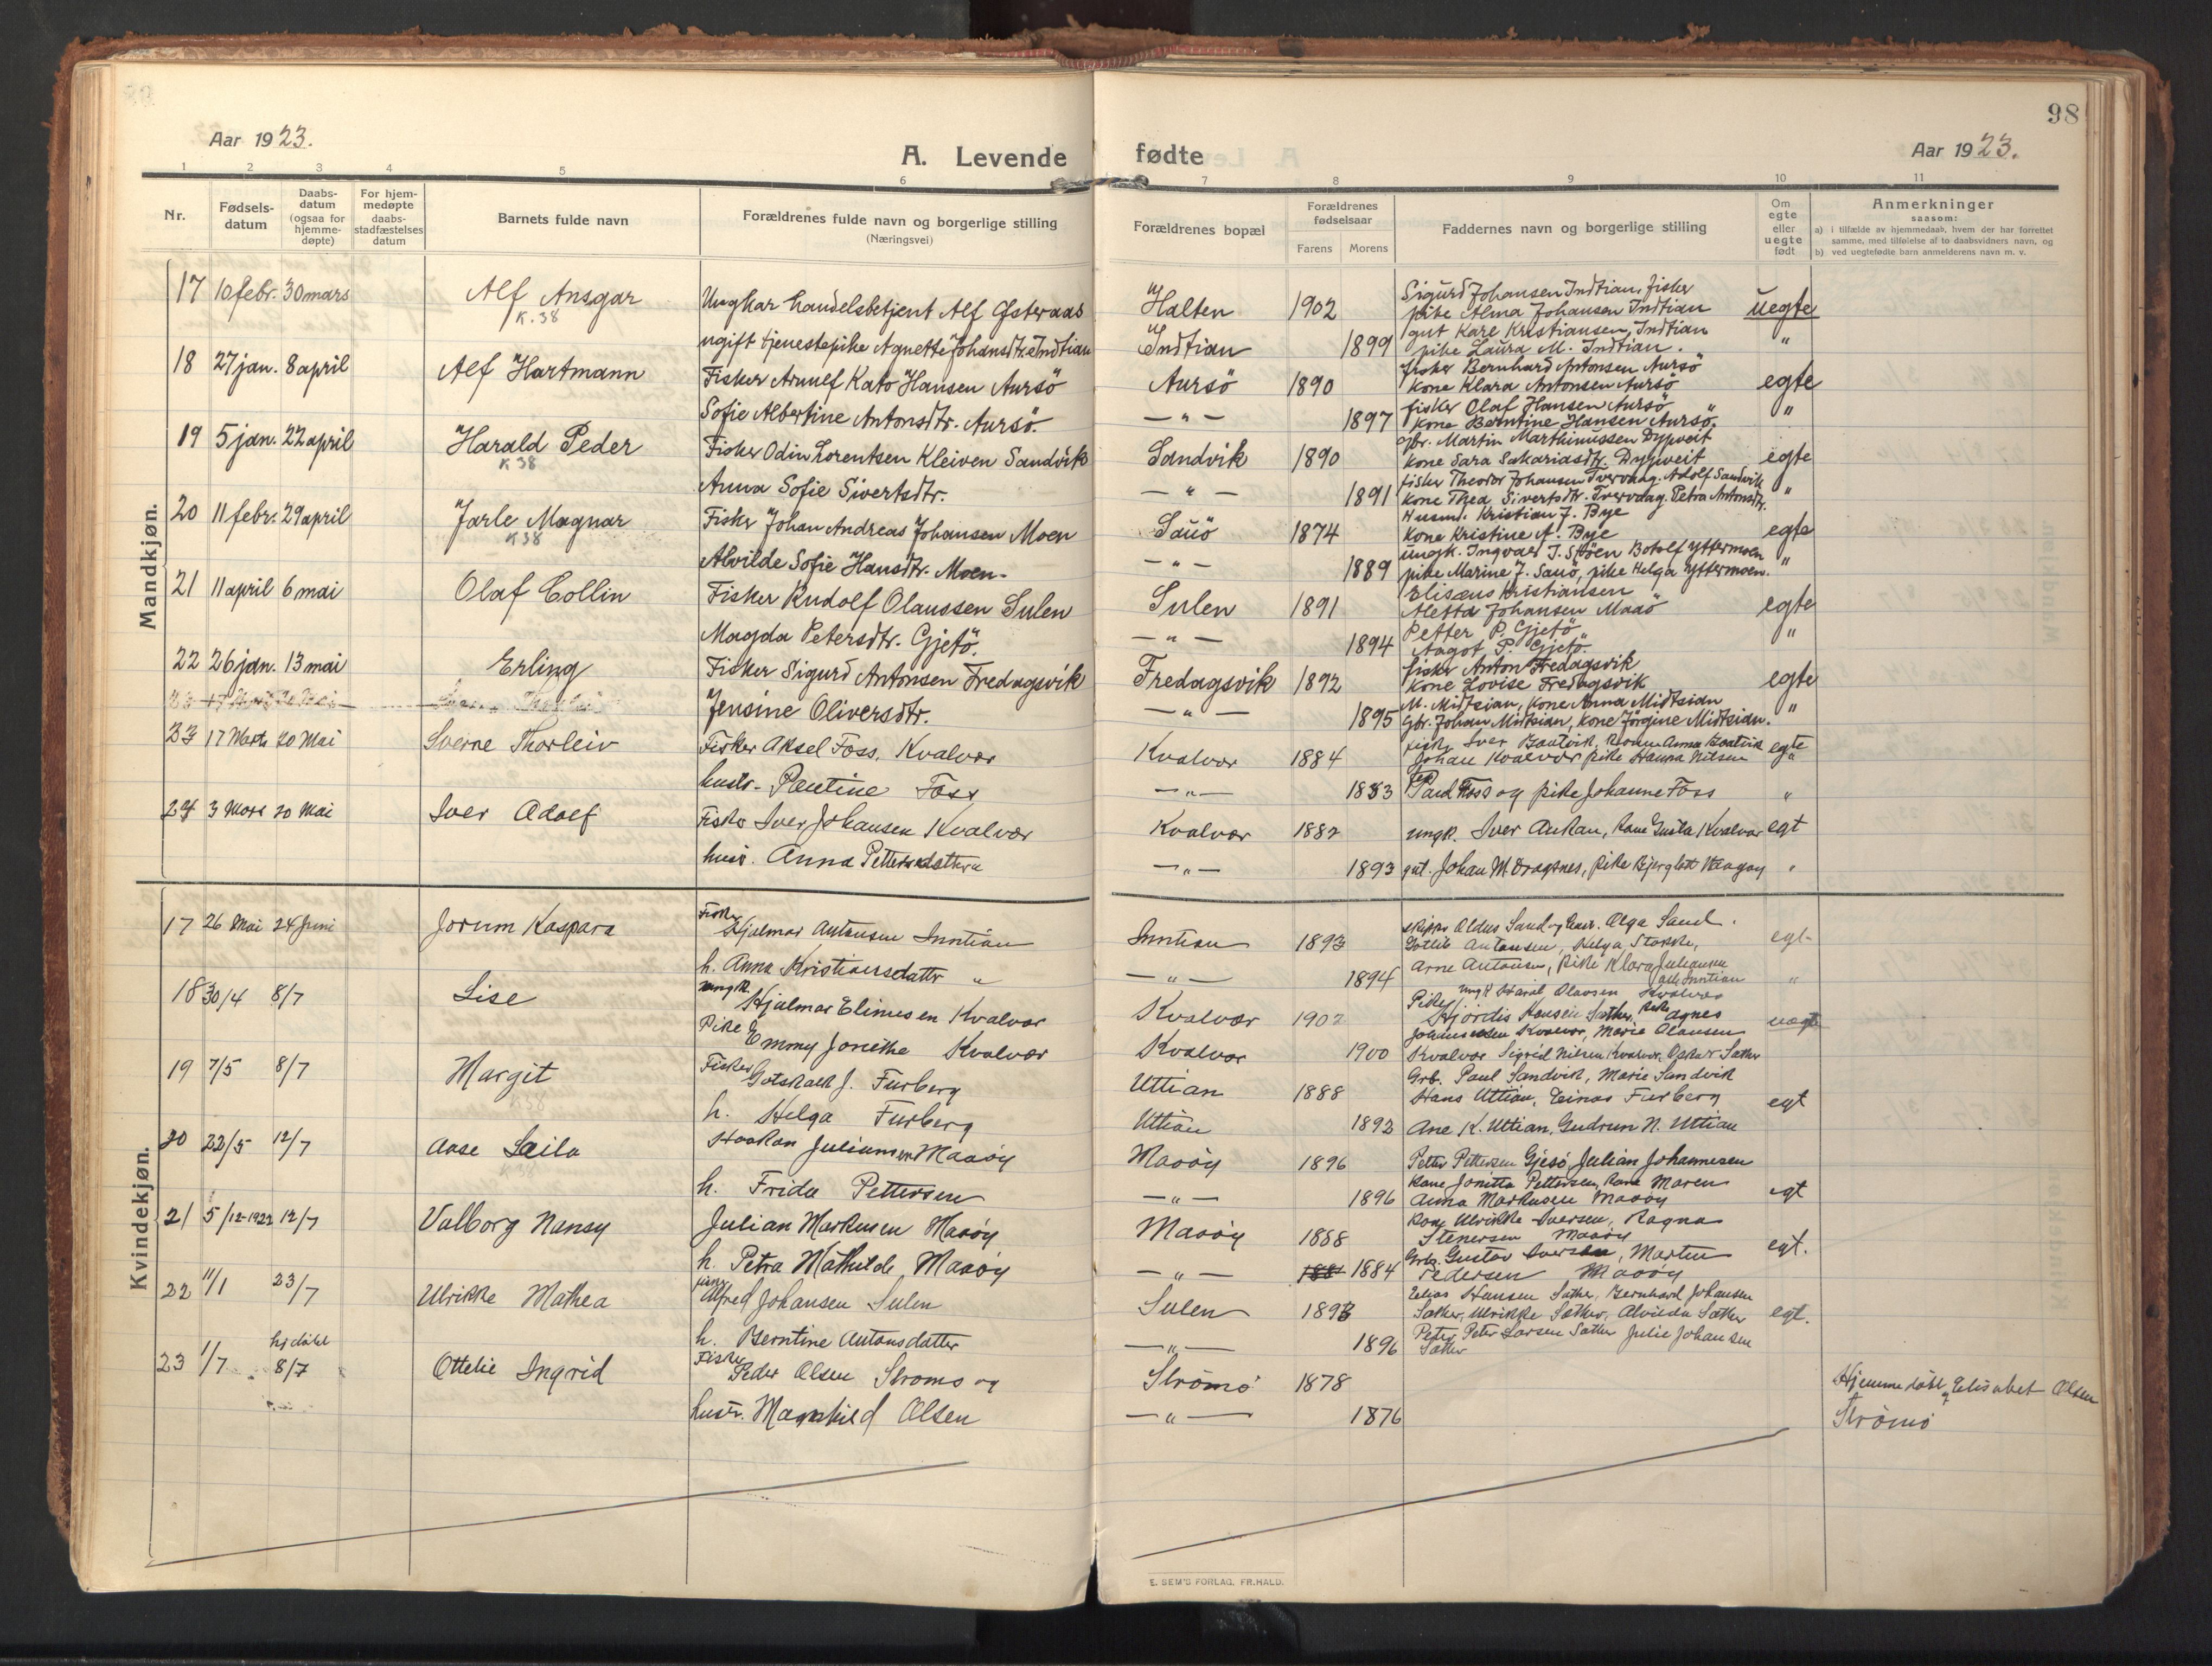 98
Aar 1923.
A. Levende fødte
Aar 1923.
1 2 3 4 5 6 7 8 9 10 11
Nr.
Fødsels-datum
Daabs-datum (ogsaa for hjemme-døpte)
For hjem-medøpte daabs-stadfæstelses datum
Barnets fulde navn
Forældrenes fulde navn og borgerlige stilling
(Næringsvei)
Forældrenes bopæl
Forældrenes fødselsaar
Farens Morens
Faddernes navn og borgerlige stilling
Om egte eller uegte født
Anmerkninger
saasom:
a) i tilfælde av hjemmedaab, hvem der har forrettet samme, med tilføielse af to daabsvidners navn, og
b) ved uegtefødte barn anmelderens navn m. v.
Mandkjøn.
17 10 febr. 30 mars Alf Ansgar Ungkar handelsbetjent Alf Østeraas Halten 1902 Sigurd Johansen Indtian, fisker uegte
K. 38 pike Alma Johansen Indtian
ugift tjenestepike Agnette Johansdtr. Indtian Indtian 1899 gut Kare Kristiansen, Indtian "
pike Laura M. Indtian.
18 27 jan. 8 april Alf Hartmann Fisker Arnulf Kato Hansen Aursö Aursö 1890 fisker Bernhard Antonsen Aursö egte
Kone Klara Antonsen Aursö
Sofie Albertine Antonsdtr. Aursö. — " — 1897 fisker Olaf Hansen Aursö "
Kone Berntine Hansen Aursö.
19 5 jan. 22 april Harald Peder Fisker Odin Lorentsen Kleiven Sandvik Sandvik 1890 gbr. Martin Marthinussen Dypveit egte
K 38 Kone Sara Sakariasdtr. Dypveit
Anna Sofie Sivertsdtr. — " — 1891 fisker Theodor Johansen Tvervaag. Adolf Sandvik "
Kone Thea Sivertsdtr. Tvervaag. Petra Antonsdtr.
20 11 febr. 29 april Jarle Magnar Fisker Johan Andreas Johansen Moen Sauö 1874 Husm. Kristian J. Bye egte
K 38 Kone Kristine A. Bye
Alvilde Sofie Hansdtr. Moen. — " — 1889 ungk. Ingvar J. Botolf Yttermoen "
pike Marine J. Sauö, pike Helga Yttermoen.
21 11 april 6 mai Olaf Collin Fisker Rudolf Olaussen Sulen Sulen 1891 Elisæus Kristiansen egte
Aletta Johansen Maaö
Magda Petersdtr. Gjetö. — " — 1894 Petter P. Gjetö "
Aagot P. Gjetö.
22 26 jan. 13 mai Erling Fisker Sigurd Antonsen Fredagsvik Fredagsvik 1892 fisker Anton Fredagsvik egte
Kone Lovise Fredagsvik
Jensine Oliversdtr. — " — 1895 M. Midtsian, Kone Anna Midtsian "
Gbr. Johan Midtsian, Kone Jörgine Midtsian.
23 17 Marts 20 Mai Sverre Thorleiv Fisker Aksel Foss, Kvalvær Kvalvær 1884 Iver Anna egte
Johan Kvalvær pike Hanna Nilsen "
hustr. Pauline Foss — " — 1883 Paul Foss og pike Johanne Foss "
24 3 Mars 20 Mai Iver Adolf Fisker Iver Johansen Kvalvær Kvalvær 1882 ungk. Iver Aukan, Kone Gusta Kvalvær egt
husr. Anna Pettersdatter — " — 1893 gut. Johan M. pike "
Kvindekjøn.
17 26 Mai 24 Juni Jorum Kaspara Fisker Hjalmar Antonsen Inntian Inntian 1893 Skipper Aldus Sand og husr. Olga Sand. egt.
Gotlib Antonsen, Helga Stokke,
h. Anna Kristiansdatter " — " — 1894 Arne Antonsen, pike Klara Juliansen "
alle Inntian
18 30/4 8/7 Lise ungk. Hjalmar Elinusen Kvalvær Kvalvær 1902 ungk Harald Olavsen Kvalvær uægte
Pike Hjördis Hansen Sæther, Pike Agnes
Pike Emmy Jonette Kvalvær Kvalvær 1900 Johannesen Kvalvær, Marie Olausen
Kvalvær Sigrid Nilsen Kvalvær, Oskar Sæther
19 7/5 8/7 Margit Fisker Gotskalk J. Furberg Uttian 1888 Grb. Paul Sandvik, Marie Sandvik egt
K38 Hans Uttian, Einar Furberg
h. Helga Furberg Uttian 1892 Ane K. Uttian, Gudrun N. Uttian
20 22/5 12/7 Aase Laila Haakon Juliansen Maaöy Maaöy 1896 Peter Pettersen Gjesö, Julian Johannesen
K 38 Kone Jonitta Pettersen, Kone Maren
h. Frida Pettersen — " — 1896 Anna Markusen Maaöy egt
21 5/12-1922 12/7 Valborg Nansy Julian Markusen Maaöy Maaöy 1888 Kone Ulrikke Iversen, Ragna
Stenersen Maaöy egt.
h. Petra Mathilde Maaöy — " — 1881 1884 Grb. Gustav Iversen, Martin
Pedersen Maaöy
22 11/1 23/7 Ulrikke Mathea Alfred Johansen Sulen Sulen 1893 Elias Hansen Sæther, Bernhard Johansen
Sæther, Ulrikke Sæther, Alvilda Sæther egt.
h. Berntine Antonsdatter — " — 1896 Peter Larsen Sæther Julie Johansen
Sæther
23 1/7 hj döbt 8/7 Ottelie Ingrid Fisker Peder Olsen Strömö og Strömö 1878 Hjemmedöbt af Elisabet Olsen
husr. Magnhild Olsen — " — 1876 Strömö
E. SEM'S FORLAG, FR.HALD.